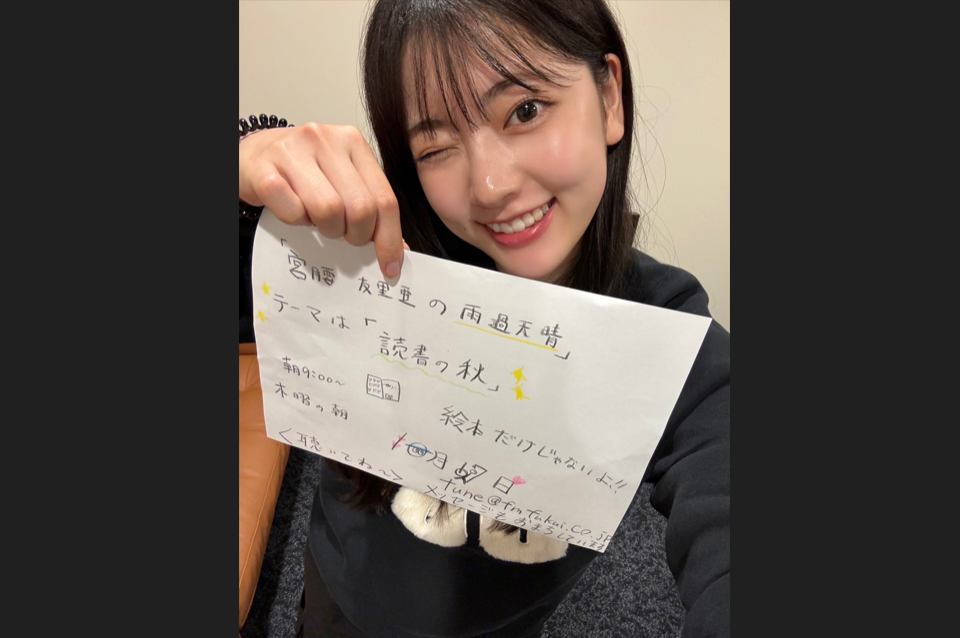 「宮腰 友里亜の雨過天晴」
テーマは「読書の秋」
朝9:00〜
木曜の朝
絵本だけじゃないよ!!
月 日
<聴いてね〜>
tune@fmfukui.co.jp
メッセージもおまちしています